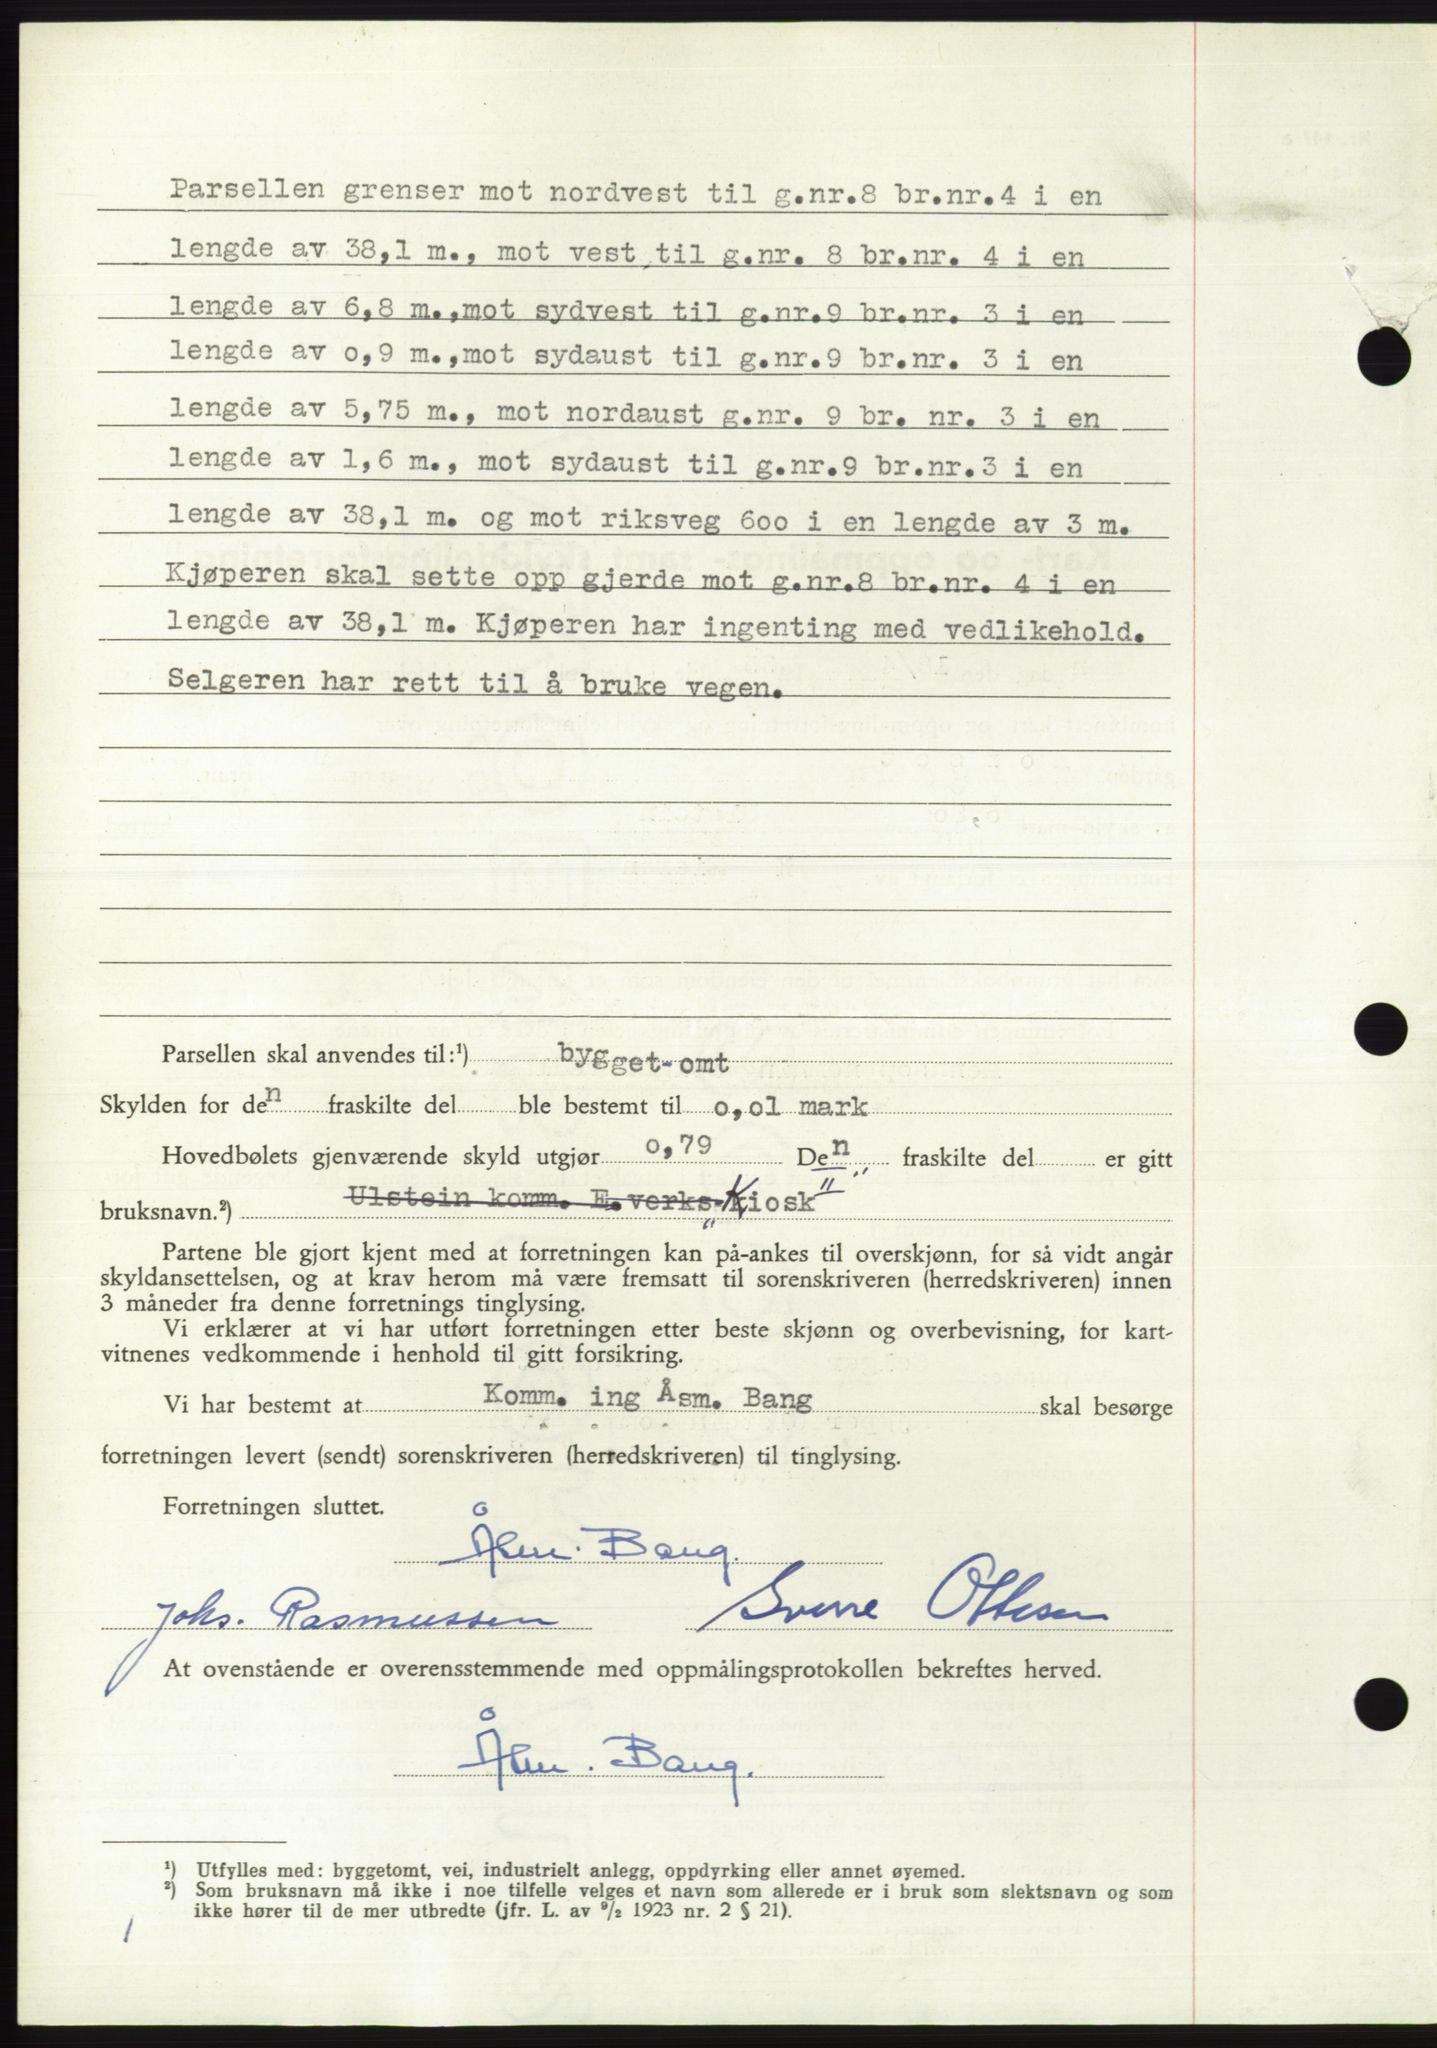 Parsellen grenser mot nordvest til g.nr.8 br.nr.4 i en
lengde av 38,1 m., mot vest til g.nr. 8 br.nr. 4 i en
lengde av 6,8 m.,mot sydvest til g.nr.9 br.nr. 3 i en
lengde av 0,9 m.,mot sydaust til g.nr.9 br.nr. 3 i en
lengde av 5,75 m., mot nordaust g.nr. 9 br. nr. 3 i en
lengde av 1,6 m., mot sydaust til g.nr.9 br.nr.3 i en
lengde av 38,1 m. og mot riksveg 600 i en lengde av 3 m.
Kjøperen skal sette opp gjerde mot g.nr.8 br.nr. 4 i en
lengde av 38,1 m. Kjøperen har ingenting med vedlikehold.
Selgeren har rett til å bruke vegen.
Parsellen skal anvendes til:¹) bygget-omt
Skylden for den fraskilte del ble bestemt til 0,01 mark
Hovedbølets gjenværende skyld utgjør 0,79 Den fraskilte del er gitt
bruksnavn.²) Ulstein komm. E.verks-Kiosk"
Partene ble gjort kjent med at forretningen kan på-ankes til overskjønn, for så vidt angår
skyldansettelsen, og at krav herom må være fremsatt til sorenskriveren (herredskriveren) innen
3 måneder fra denne forretnings tinglysing.
Vi erklærer at vi har utført forretningen etter beste skjønn og overbevisning, for kart-
vitnenes vedkommende i henhold til gitt forsikring.
Vi har bestemt at Komm. ing Åsm. Bang skal besørge
forretningen levert (sendt) sorenskriveren (herredskriveren) til tinglysing.
Forretningen sluttet.
Åsm. Bang.
Johs. Rasmussen Sverre Ottesen
At ovenstående er overensstemmende med oppmålingsprotokollen bekreftes herved.
Åsm. Bang.
¹) Utfylles med: byggetomt, vei, industrielt anlegg, oppdyrking eller annet øyemed.
²) Som bruksnavn må ikke i noe tilfelle velges et navn som allerede er i bruk som slektsnavn og som
ikke hører til de mer utbredte (jfr. L. av 9/2 1923 nr. 2 § 21).